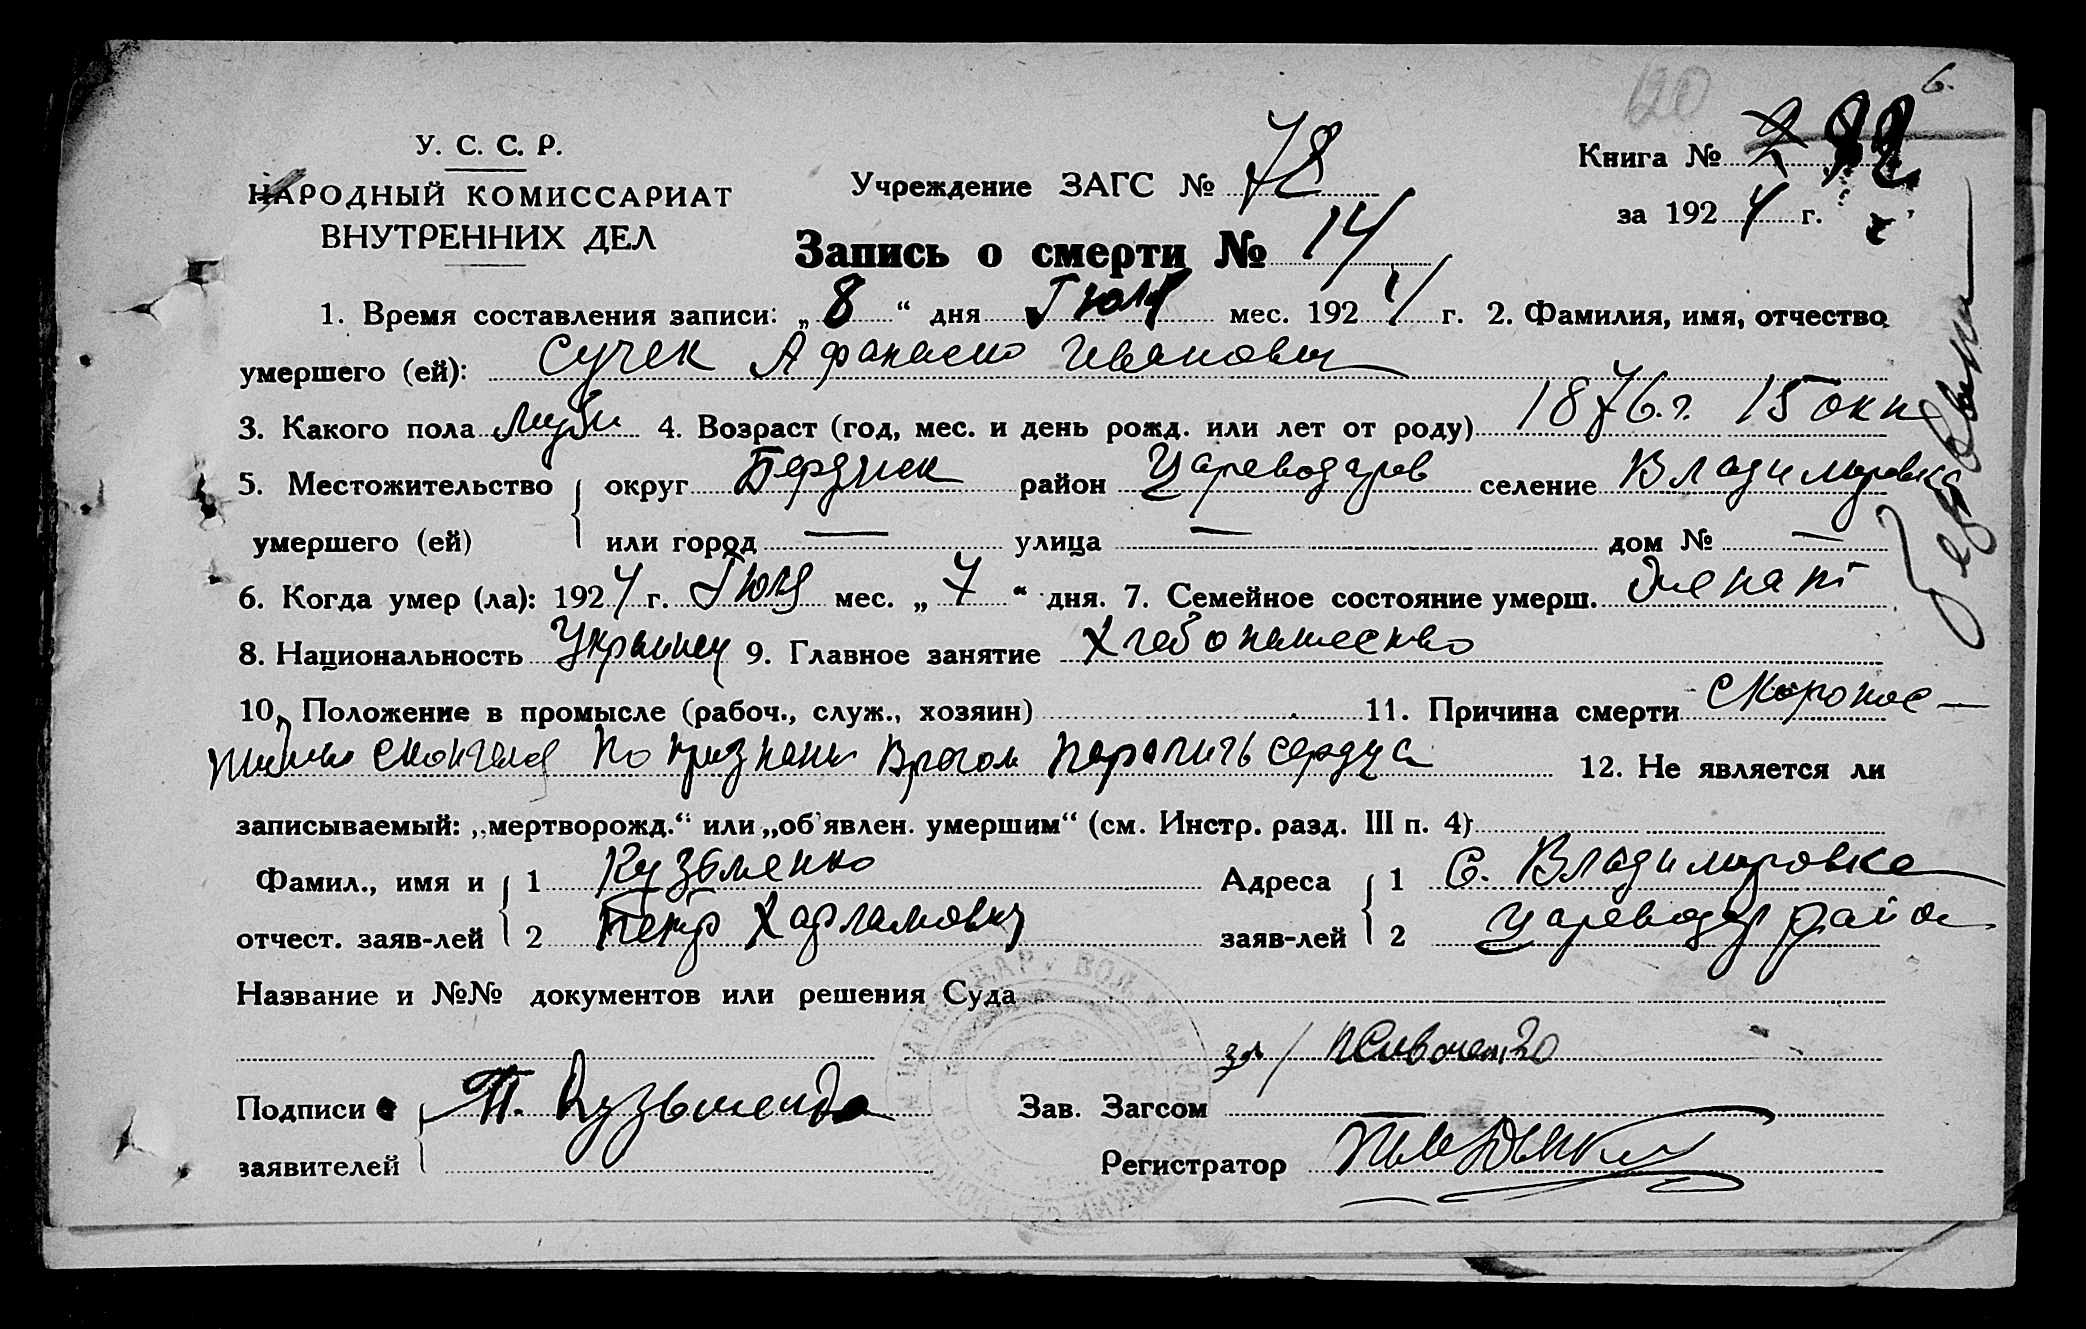 120
6.
У. С. С. Р.
НАРОДНЫЙ КОМИССАРИАТ
ВНУТРЕННИХ ДЕЛ
Учреждение ЗАГС № 78
Книга №
за 1924 г.
Запись о смерти № 14
1. Время составления записи: „ 8 “ дня Июля мес. 1924 г. 2. Фамилия, имя, отчество
умершего (ей): Сучек Афанасио Иванович
3. Какого пола мужи 4. Возраст (год, мес. и день рожд. или лет от роду) 1876.г. 15 окт
5. Местожительство округ Бердянск район Цареводаров селение Владимировка
умершего (ей) или город — улица — дом № —
6. Когда умер (ла): 1924 г. Июля мес. „ 7 “ дня. 7. Семейное состояние умерш. Женат
8. Национальность Украинец 9. Главное занятие Хлебопашество
10. Положение в промысле (рабоч., служ., хозяин) 11. Причина смерти Скоропос-
тижно скончался по признани Врагом Паралить сердца 12. Не является ли
записываемый: „мертворожд.“ или „об'явлен. умершим“ (см. Инстр. разд. III п. 4)
Фамил., имя и 1 Кузьменко Адреса 1 С. Владимировка
отчест. заяв-лей 2 Петр Харламович заяв-лей 2 Цареводар район
Название и №№ документов или решения Суда
Подписи Кузьменко Зав. Загсом
заявителей Регистратор